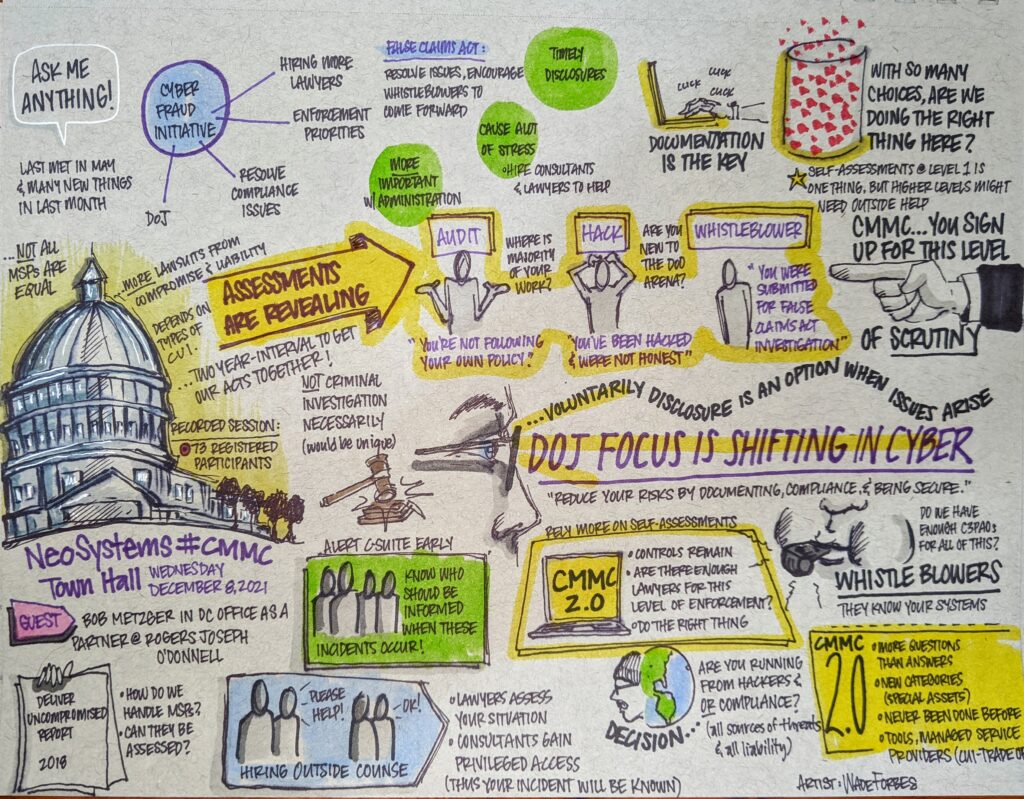 ASK ME
ANYTHING!
LAST MET IN MAY
& MANY NEW THINGS
IN LAST MONTH
CYBER
FRAUD
INITIATIVE
HIRING MORE
LAWYERS
ENFORCEMENT
PRIORITIES
RESOLVE
COMPLIANCE
ISSUES
DOJ
FALSE CLAIMS ACT:
RESOLVE ISSUES, ENCOURAGE
WHISTLEBLOWERS TO
COME FORWARD
TIMELY
DISCLOSURES
CAUSE ALOT
OF STRESS
• HIRE CONSULTANTS
& LAWYERS TO HELP
MORE
IMPORTANT
W/ ADMINISTRATION
CLICK
CLICK
CLICK
DOCUMENTATION
IS THE KEY
WITH SO MANY
CHOICES, ARE WE
DOING THE RIGHT
THING HERE?
SELF-ASSESSMENTS @ LEVEL 1 IS
ONE THING, BUT HIGHER LEVELS MIGHT
NEED OUTSIDE HELP
...NOT ALL
MSPs ARE
EQUAL
...MORE LAWSUITS FROM
COMPROMISE & LIABILITY
DEPENDS ON
TYPES OF
CUI.
...TWO YEAR-INTERVAL TO GET
OUR ACTS TOGETHER!
ASSESSMENTS
ARE REVEALING
AUDIT
"YOU'RE NOT FOLLOWING
YOUR OWN POLICY."
WHERE IS
MAJORITY
OF YOUR
WORK?
HACK
"YOU'VE BEEN HACKED
& WERE NOT HONEST"
ARE YOU
NEW TO
THE DOD
ARENA?
WHISTLEBLOWER
"YOU WERE
SUBMITTED
FOR FALSE
CLAIMS ACT
INVESTIGATION"
CMMC...YOU SIGN
UP FOR THIS LEVEL
OF SCRUTINY
RECORDED SESSION:
73 REGISTERED
PARTICIPANTS
NOT CRIMINAL
INVESTIGATION
NECESSARILY
(would be unique)
...VOLUNTARILY DISCLOSURE IS AN OPTION WHEN ISSUES ARISE
DOJ FOCUS IS SHIFTING IN CYBER
"REDUCE YOUR RISKS BY DOCUMENTING, COMPLIANCE, & BEING SECURE."
NeoSystems #CMMC
Town Hall
WEDNESDAY
DECEMBER 8, 2021
GUEST
BOB METZGER IN DC OFFICE AS A
PARTNER @ ROGERS JOSEPH
O'DONNELL
ALERT C-SUITE EARLY
KNOW WHO
SHOULD BE
INFORMED
WHEN THESE
INCIDENTS OCCUR!
RELY MORE ON SELF-ASSESSMENTS
CMMC
2.0
• CONTROLS REMAIN
• ARE THERE ENOUGH
LAWYERS FOR THIS
LEVEL OF ENFORCEMENT?
• DO THE RIGHT THING
DO WE HAVE
ENOUGH C3PAOs
FOR ALL OF THIS?
WHISTLE BLOWERS
THEY KNOW YOUR SYSTEMS
DELIVER
UNCOMPROMISED
REPORT
2018
• HOW DO WE
HANDLE MSPs?
• CAN THEY BE
ASSESSED?
PLEASE
HELP!
OK!
HIRING OUTSIDE COUNSE
• LAWYERS ASSESS
YOUR SITUATION
• CONSULTANTS GAIN
PRIVILEGED ACCESS
(THUS YOUR INCIDENT WILL BE KNOWN)
DECISION...
ARE YOU RUNNING
FROM HACKERS &
OR COMPLIANCE?
(all sources of threats
& all liability)
CMMC
2.0
• MORE QUESTIONS
THAN ANSWERS
• NEW CATEGORIES
(SPECIAL ASSETS)
• NEVER BEEN DONE BEFORE
• TOOLS, MANAGED SERVICE
PROVIDERS (CUI-TRADE OF
ARTIST: WADE FORBES